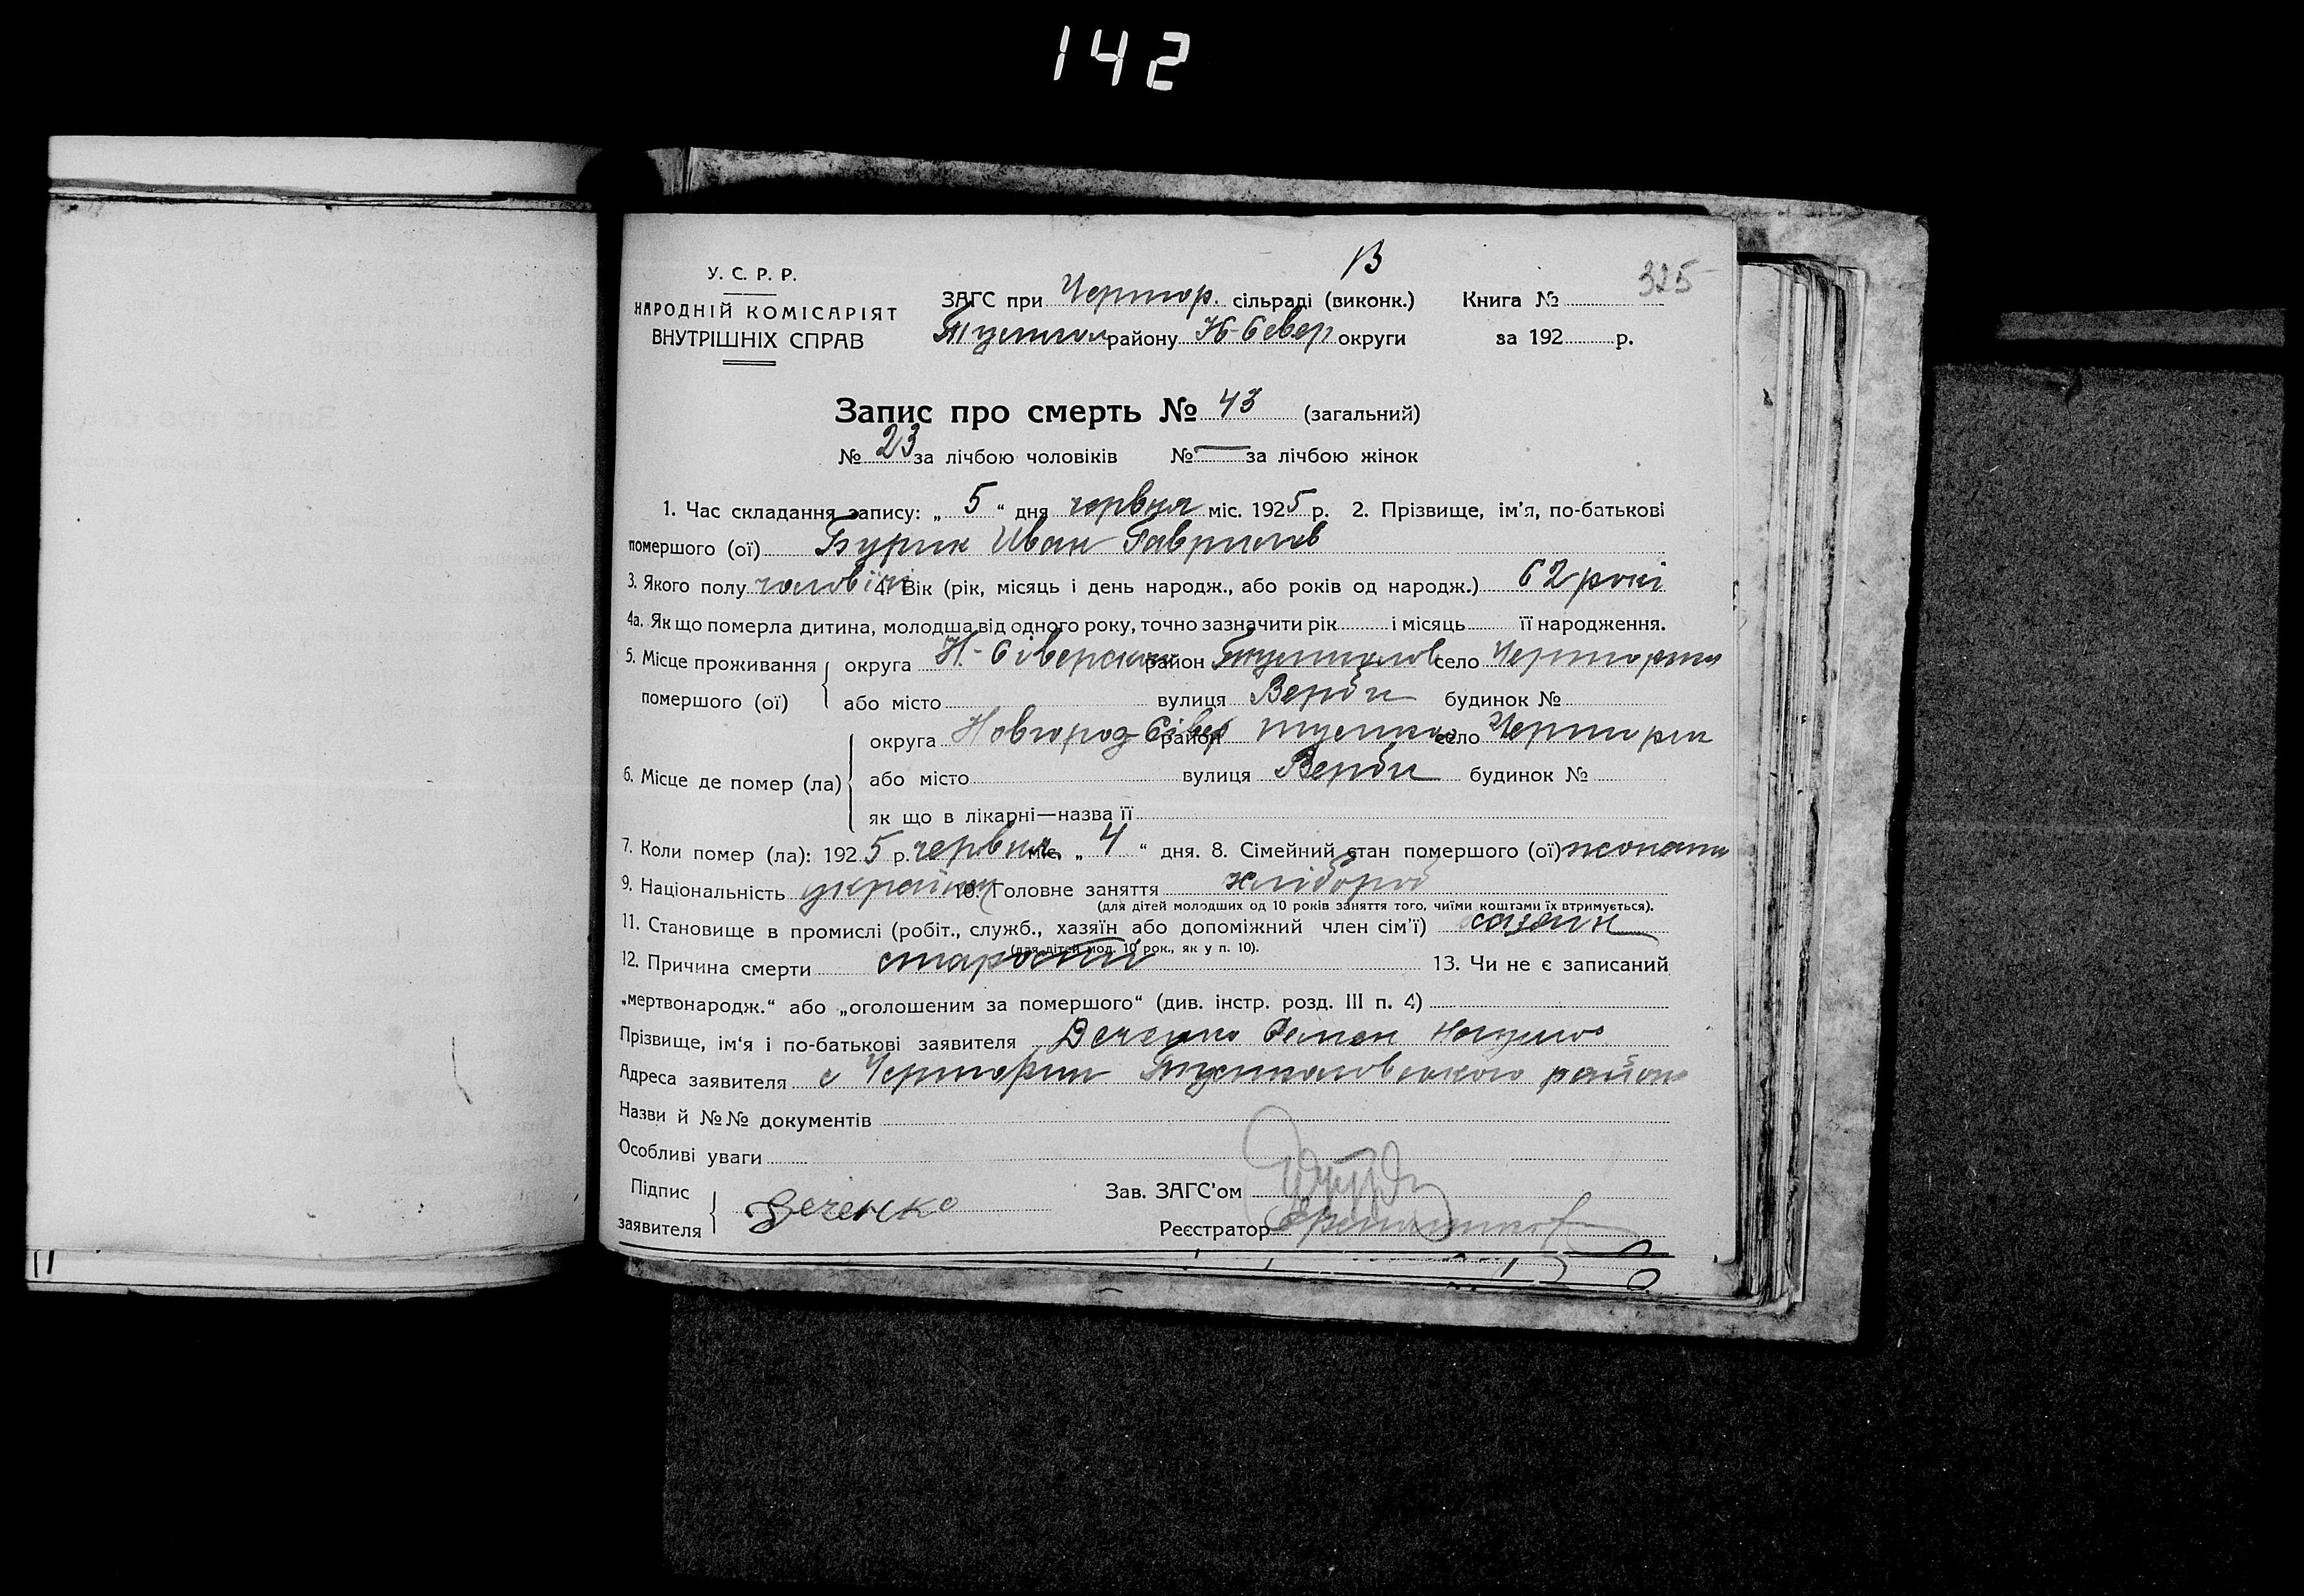 142
В
325
У. С. Р. Р.
НАРОДНІЙ КОМІСАРІЯТ
ВНУТРІШНІХ СПРАВ
ЗАГС при Чертор. сільраді (виконк.) Книга №
району Н-Север округи за 192 р.
Запис про смерть № 43 (загальний)
№ 23 за лічбою чоловіків № — за лічбою жінок
1. Час складання запису: „ 5 “ дня червня міс. 1925 р. 2. Прізвище, ім’я, по-батькові
помершого (ої) Бурик Иван Гаврилов
3. Якого полу чоловічи 4. Вік (рік, місяць і день народж., або років од народж.) 62 рокі
4а. Як що померла дитина, молодша від одного року, точно зазначити рік і місяць її народження.
5. Місце проживання округа Н-Сіверська район село
помершого (ої) або місто вулиця Верби будинок №
округа Новгород-Сівер район село
6. Місце де помер (ла) або місто вулиця Верби будинок №
як що в лікарні—назва її
7. Коли помер (ла): 1925 р. червня міс. „ 4 “ дня. 8. Сімейний стан помершого (ої)
9. Національність 10. Головне заняття хлібороб
(для дітей молодших од 10 років заняття того, чиїми коштами їх втримується).
11. Становище в промислі (робіт., служб., хазяїн або допоміжний член сім’ї)
(для дітей мол. 10 рок., як у п. 10).
12. Причина смерти старости 13. Чи не є записаний
„мертвонародж.“ або „оголошеним за помершого“ (див. інстр. розд. III п. 4)
Прізвище, ім’я і по-батькові заявителя
Адреса заявителя с району
Назви й №№ документів
Особливі уваги
Підпис
заявителя
Деченко
Зав. ЗАГС’ом
Реєстратор